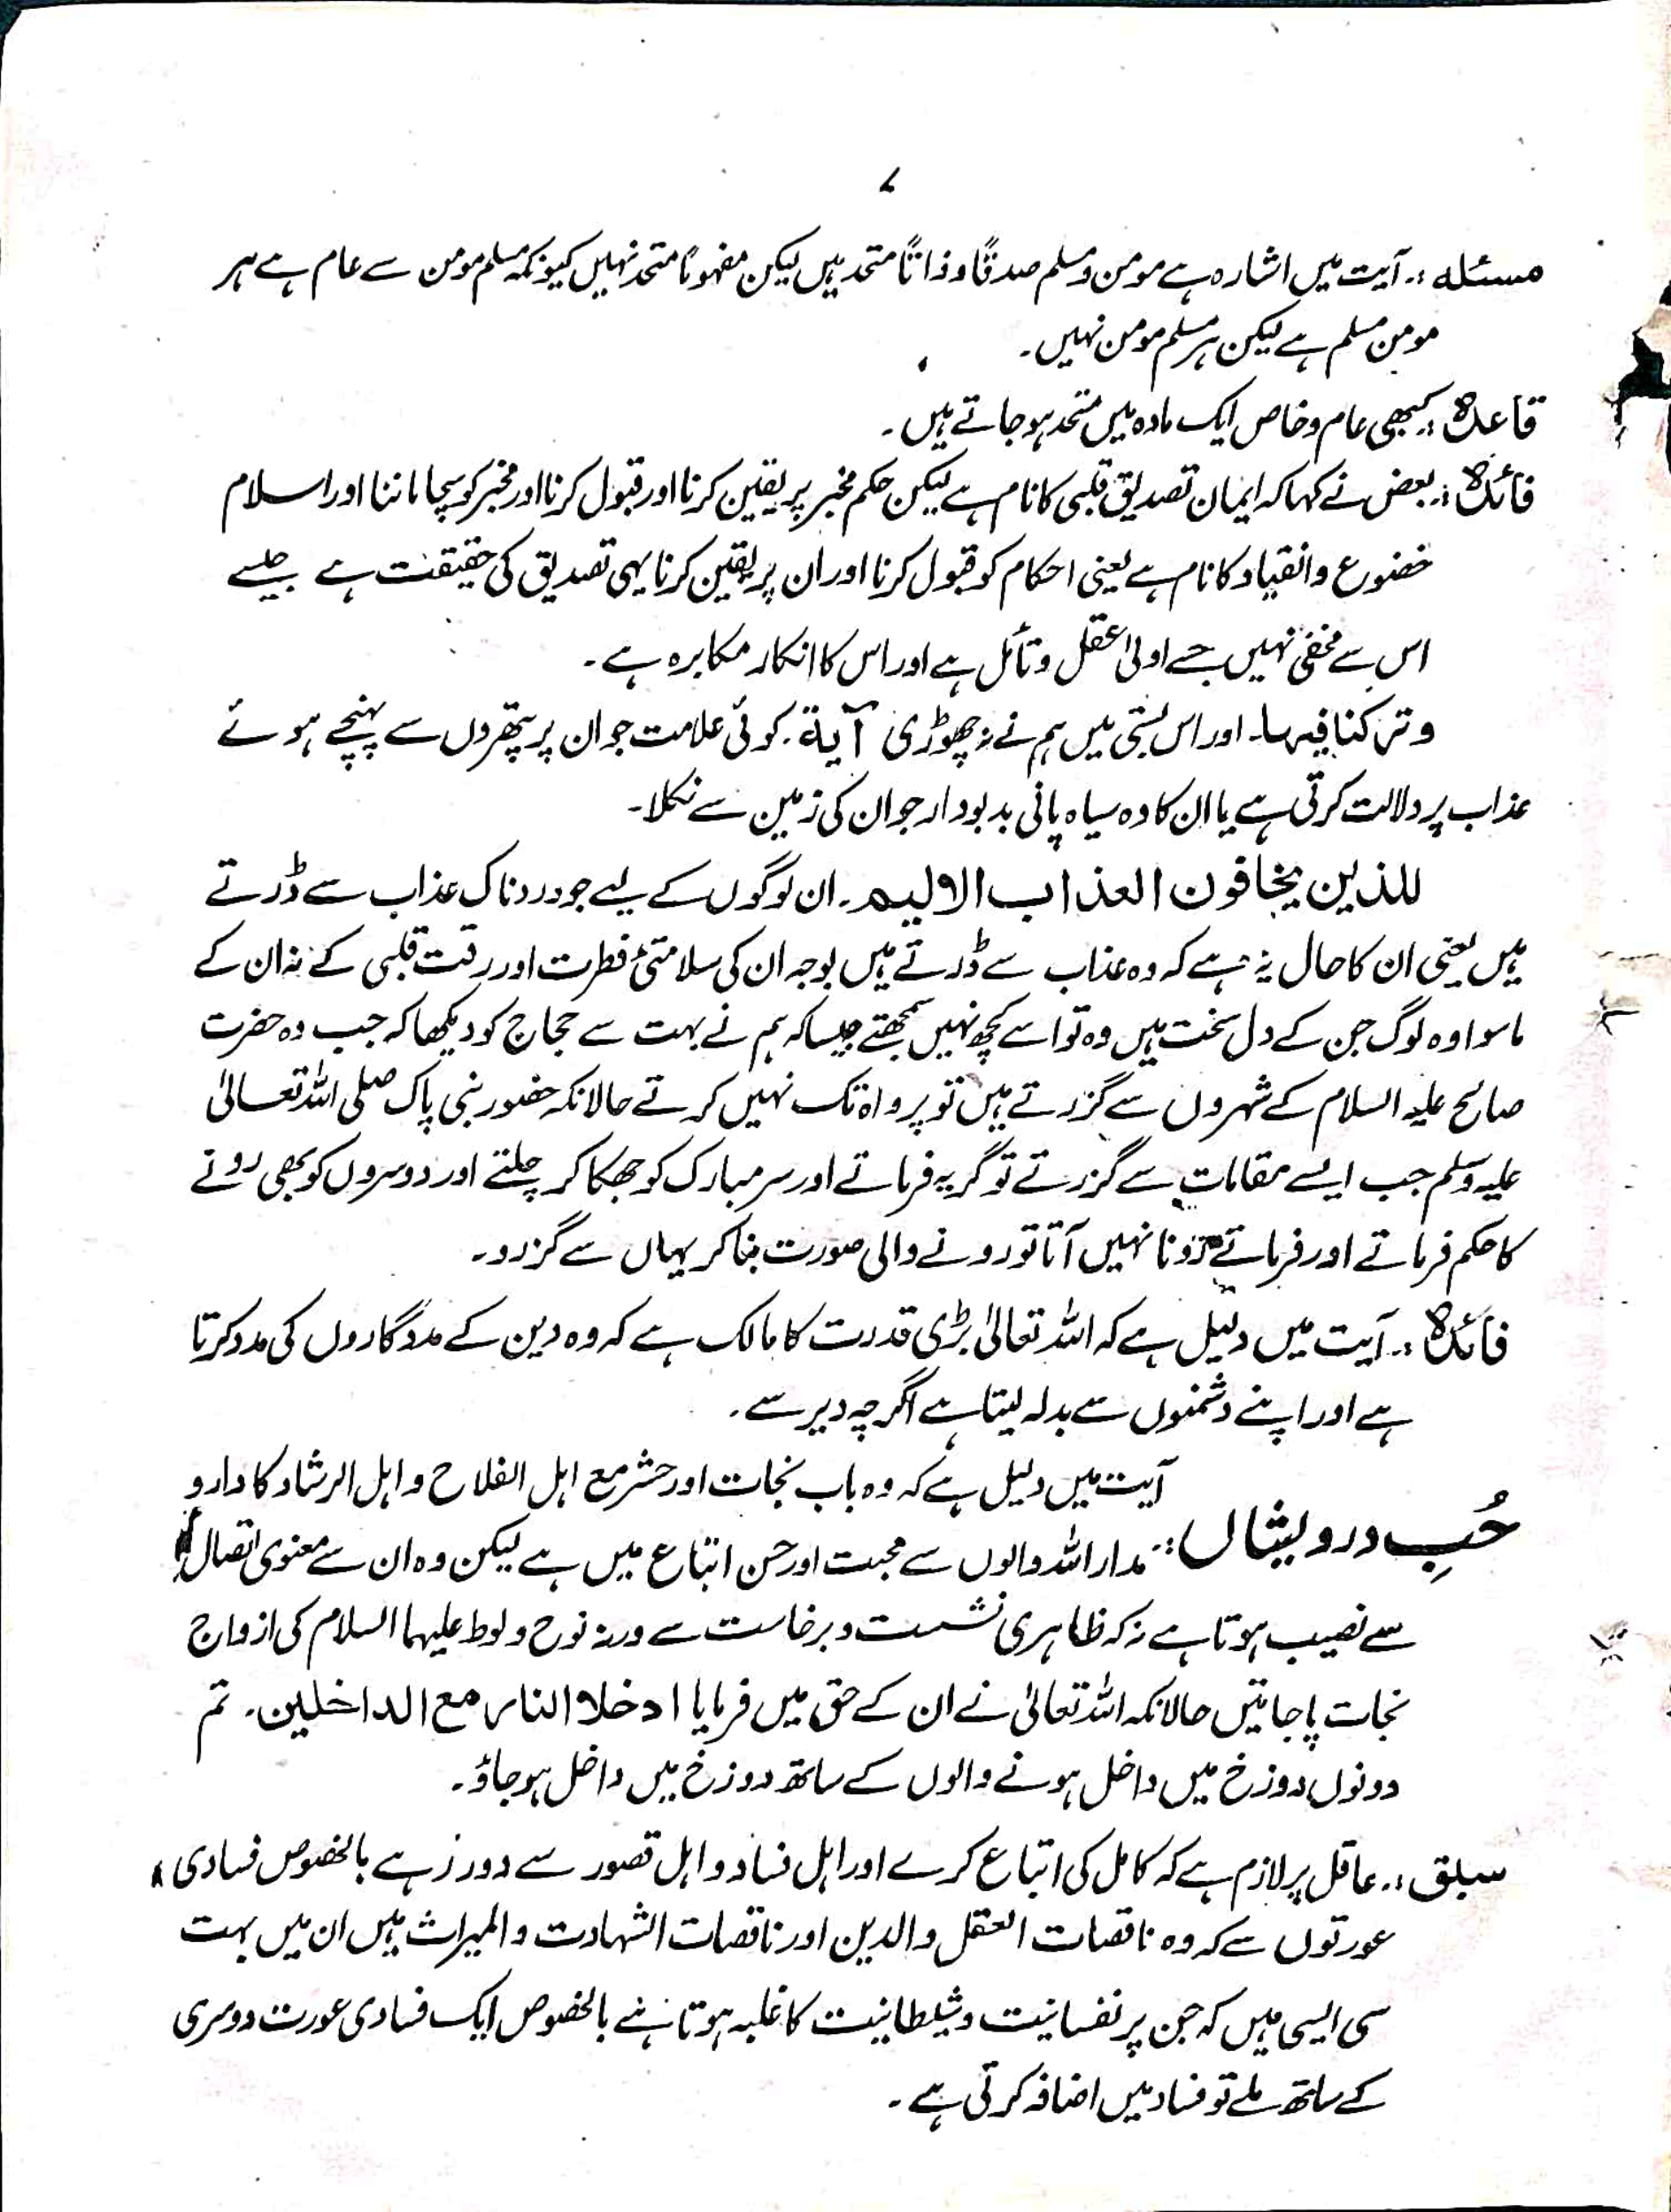 ۷
مسئلہ :۔ آیت میں اشارہ ہے مومن و مسلم صدقًا و ذاتًا متحد ہیں لیکن مفہومًا متحد نہیں کیونکہ مسلم مومن سے عام ہے ہر
مومن مسلم ہے لیکن ہر مسلم مومن نہیں۔
قاعدہ :۔ کبھی عام و خاص ایک مادہ میں متحد ہو جاتے ہیں۔
فائدہ :۔ بعض نے کہا کہ ایمان تصدیق قلبی کا نام ہے لیکن حکم مخبر پر یقین کرنا اور قبول کرنا اور مخبر کو سچا ماننا اور اسلام
خضوع و انقیاد کا نام ہے یعنی احکام کو قبول کرنا اور ان پر یقین کرنا یہی تصدیق کی حقیقت ہے جیسے
اس سے مخفی نہیں جسے اولیٰ عقل و تأمل ہے اور اس کا انکار مکابرہ ہے۔
وترکنا فیہا۔ اور اس بستی میں ہم نے چھوڑی آیة۔ کوئی علامت جو ان پر پتھروں سے پہنچے ہوئے
عذاب پر دلالت کرتی ہے یا ان کا وہ سیاہ پانی بدبودار جو ان کی زمین سے نکلا۔
للذین یخافون العذاب الالیم۔ ان لوگوں کے لیے جو دردناک عذاب سے ڈرتے
ہیں یعنی ان کا حال یہ ہے کہ وہ عذاب سے ڈرتے ہیں بوجہ ان کی سلامتیٔ فطرت اور رقت قلبی کے نہ ان کے
ماسوا وہ لوگ جن کے دل سخت ہیں وہ تو اسے کچھ نہیں سمجھتے جیسا کہ ہم نے بہت سے حجاج کو دیکھا کہ جب وہ حضرت
صالح علیہ السلام کے شہروں سے گزرتے ہیں تو پرواہ تک نہیں کرتے حالانکہ حضور نبی پاک صلی اللہ تعالیٰ
علیہ وسلم جب ایسے مقامات سے گزرتے تو گریہ فرماتے اور سر مبارک کو جھکا کر چلتے اور دوسروں کو بھی رونے
کا حکم فرماتے اور فرماتے رونا نہیں آتا تو رونے والی صورت بنا کر یہاں سے گزرو۔
فائدہ :۔ آیت میں دلیل ہے کہ اللہ تعالیٰ بڑی قدرت کا مالک ہے کہ وہ دین کے مددگاروں کی مدد کرتا
ہے اور اپنے دشمنوں سے بدلہ لیتا ہے اگرچہ دیر سے۔
آیت میں دلیل ہے کہ وہ باب نجات اور حشر مع اہل الفلاح و اہل الرشاد کا دار و
حُبِ درویشاں :۔ مدار اللہ والوں سے محبت اور حسن اتباع میں ہے لیکن وہ ان سے معنوی اتصال
سے نصیب ہوتا ہے نہ کہ ظاہری نشست و برخاست سے ورنہ نوح و لوط علیہما السلام کی ازواج
نجات پا جاتیں حالانکہ اللہ تعالیٰ نے ان کے حق میں فرمایا ادخلا النار مع الداخلین۔ تم
دونوں دوزخ میں داخل ہونے والوں کے ساتھ دوزخ میں داخل ہو جاؤ۔
سبلق :۔ عاقل پر لازم ہے کہ کامل کی اتباع کرے اور اہل فساد و اہل قصور سے دور رہے بالخصوص فسادی
عورتوں سے کہ وہ ناقصات العقل والدین اور ناقصات الشہادت والمیراث ہیں ان میں بہت
سی ایسی ہیں کہ جن پر نفسانیت و شیطانیت کا غلبہ ہوتا ہے بالخصوص ایک فسادی عورت دوسری
کے ساتھ ملے تو فساد میں اضافہ کرتی ہے۔